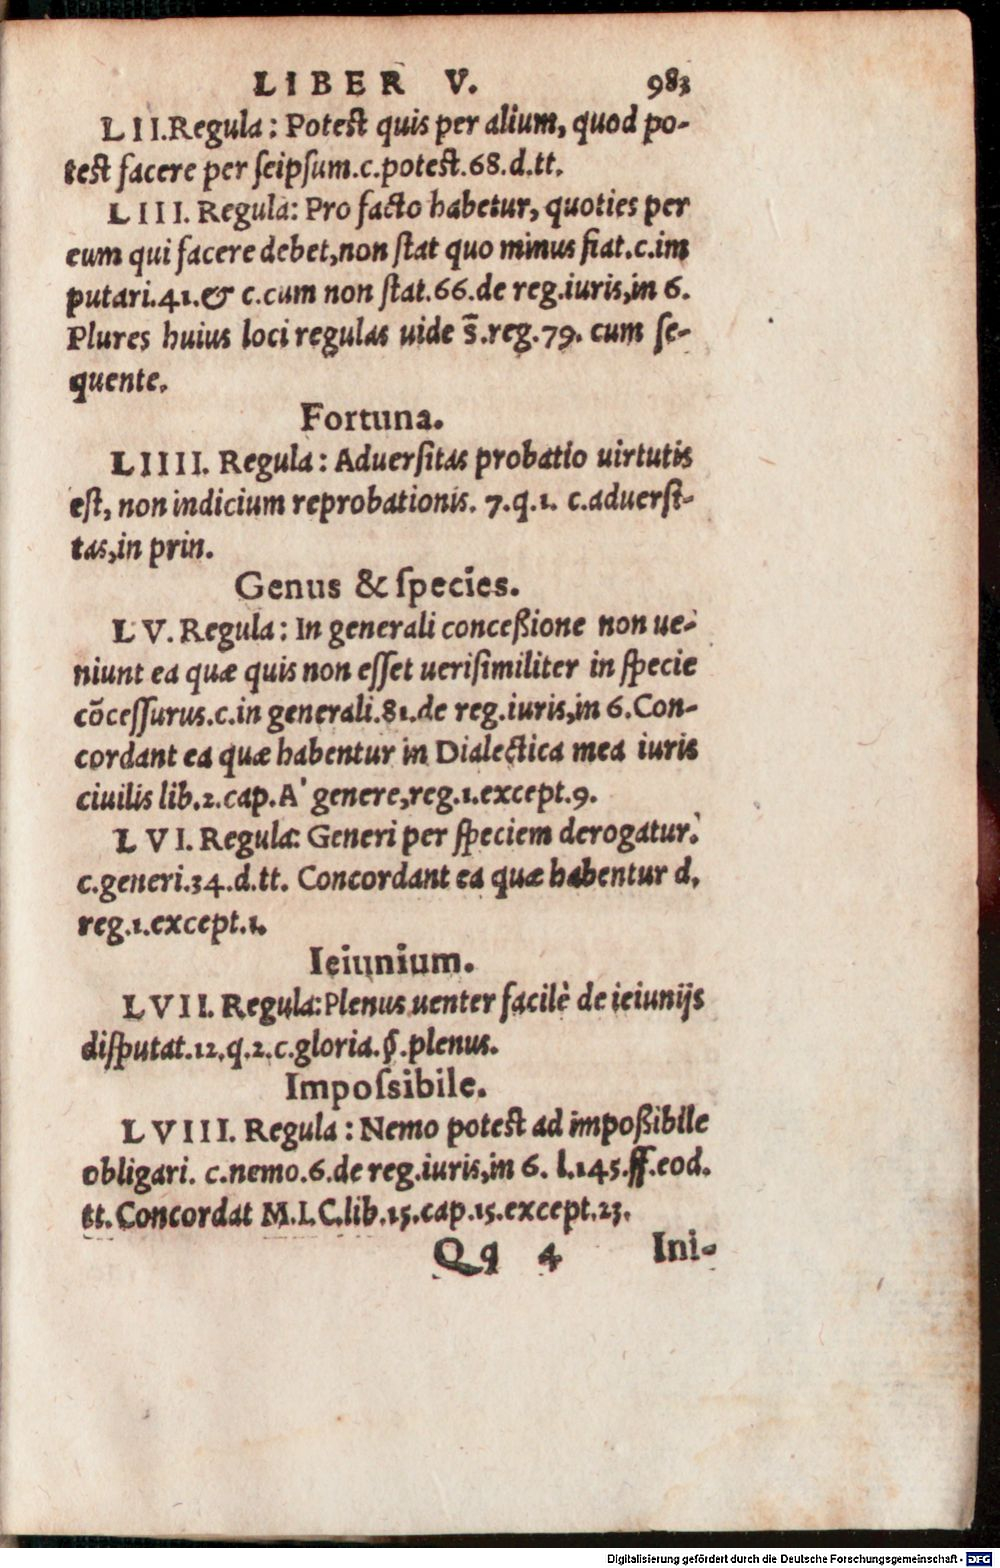 LIBER V. 983
LII. Regula: Potest quis per alium, quod po-
test facere per ſeipſum.c.potest.68.d.tt.
LIII. Regula: Pro facto habetur, quoties per
eum qui facere debet, non ſtat quo minus fiat.c.im
putari.41.& c.cum non ſtat.66.de reg.iuris,in 6.
Plures huius loci regulas uide s̄.reg.79. cum ſe-
quente.
Fortuna.
LIIII. Regula: Aduerſitas probatio uirtutis
eſt, non indicium reprobationis. 7.q.1. c.aduerſi-
tas,in prin.
Genus & ſpecies.
LV. Regula: In generali conceßione non ue-
niunt ea quæ quis non eſſet ueriſimiliter in ſpecie
cōceſſurus.c.in generali.81.de reg.iuris,in 6.Con-
cordant ea quæ habentur in Dialectica mea iuris
ciuilis lib.2.cap.A' genere,reg.1.except.9.
LVI. Regula: Generi per ſpeciem derogatur.
c.generi.34.d.tt. Concordant ea quæ habentur d.
reg.1.except.1.
Ieiunium.
LVII. Regula: Plenus uenter facilè de ieiunijs
diſputat.12.q.2.c.gloria.§.plenus.
Impoſsibile.
LVIII. Regula: Nemo potest ad impoßibile
obligari. c.nemo.6.de reg.iuris,in 6. l.145.ff.eod.
tt. Concordat M.I.C.lib.15.cap.15.except.23.
Qq 4 Ini-
Digitalisierung gefördert durch die Deutsche Forschungsgemeinschaft - DFG